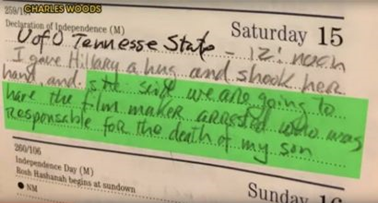 CHARLES WOODS
259/1
Declaration of Independence (M)
Saturday 15
U of O Tennesse State - 12: noon
I gave Hillary a hug and shook her
hand. and she said we are going to
have the film maker arrested who was
responsable for the death of my son
260/106
Independence Day (M)
Rosh Hashanah begins at sundown
● NM
Sunday